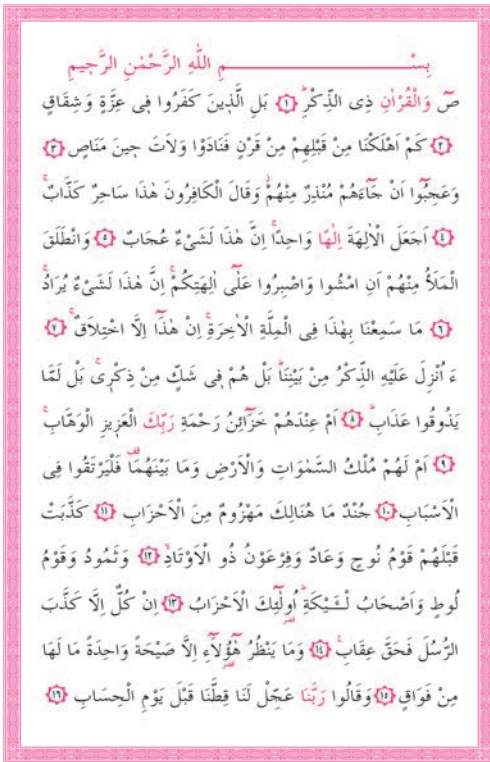 بِسْمِ اللّٰهِ الرَّحْمٰنِ الرَّحٖيمِ
صٓ وَالْقُرْاٰنِ ذِى الذِّكْرِؕ ﴿١﴾ بَلِ الَّذٖينَ كَفَرُوا فٖى عِزَّةٍ وَشِقَاقٍ
﴿٢﴾ كَمْ اَهْلَكْنَا مِنْ قَبْلِهِمْ مِنْ قَرْنٍ فَنَادَوْا وَلَاتَ حٖينَ مَنَاصٍ ﴿٣﴾
وَعَجِبُٓوا اَنْ جَٓاءَهُمْ مُنْذِرٌ مِنْهُمْؗ وَقَالَ الْكَافِرُونَ هٰذَا سَاحِرٌ كَذَّابٌۚ
﴿٤﴾ اَجَعَلَ الْاٰلِهَةَ اِلٰهًا وَاحِدًاۚ اِنَّ هٰذَا لَشَیْءٌ عُجَابٌ ﴿٥﴾ وَانْطَلَقَ
الْمَلَأُ مِنْهُمْ اَنِ امْشُوا وَاصْبِرُوا عَلٰٓى اٰلِهَتِكُمْۚ اِنَّ هٰذَا لَشَیْءٌ يُرَادُۚ
﴿٦﴾ مَا سَمِعْنَا بِهٰذَا فِى الْمِلَّةِ الْاٰخِرَةِۚ اِنْ هٰذَٓا اِلَّا اخْتِلَاقٌۚ ﴿٧﴾
ءَ اُنْزِلَ عَلَيْهِ الذِّكْرُ مِنْ بَيْنِنَاؕ بَلْ هُمْ فٖى شَكٍّ مِنْ ذِكْرٖىۚ بَلْ لَمَّا
يَذُوقُوا عَذَابِؕ ﴿٨﴾ اَمْ عِنْدَهُمْ خَزَٓائِنُ رَحْمَةِ رَبِّكَ الْعَزٖيزِ الْوَهَّابِۚ
﴿٩﴾ اَمْ لَهُمْ مُلْكُ السَّمٰوَاتِ وَالْاَرْضِ وَمَا بَيْنَهُمَا۠ فَلْيَرْتَقُوا فِى
الْاَسْبَابِ ﴿١٠﴾ جُنْدٌ مَا هُنَالِكَ مَهْزُومٌ مِنَ الْاَحْزَابِ ﴿١١﴾ كَذَّبَتْ
قَبْلَهُمْ قَوْمُ نُوحٍ وَعَادٌ وَفِرْعَوْنُ ذُو الْاَوْتَادِۙ ﴿١٢﴾ وَثَمُودُ وَقَوْمُ
لُوطٍ وَاَصْحَابُ لْـَٔيْكَةِؕ اُو۬لٰٓئِكَ الْاَحْزَابُ ﴿١٣﴾ اِنْ كُلٌّ اِلَّا كَذَّبَ
الرُّسُلَ فَحَقَّ عِقَابِ۟ ﴿١٤﴾ وَمَا يَنْظُرُ هٰٓؤُ۬لَٓاءِ اِلَّا صَيْحَةً وَاحِدَةً مَا لَهَا
مِنْ فَوَاقٍ ﴿١٥﴾ وَقَالُوا رَبَّنَا عَجِّلْ لَنَا قِطَّنَا قَبْلَ يَوْمِ الْحِسَابِ ﴿١٦﴾